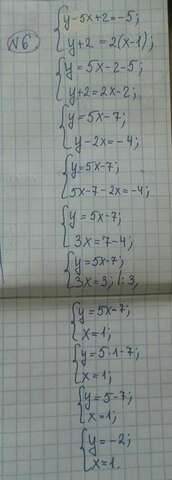 №6
{ y-5x+2=-5;
y+2=2(x-1);
{ y=5x-2-5;
y+2=2x-2;
{ y=5x-7;
y-2x=-4;
{ y=5x-7;
5x-7-2x=-4;
{ y=5x-7;
3x=7-4;
{ y=5x-7;
3x=3; /:3,
{ y=5x-7;
x=1;
{ y=5·1-7;
x=1;
{ y=5-7;
x=1;
{ y=-2;
x=1.